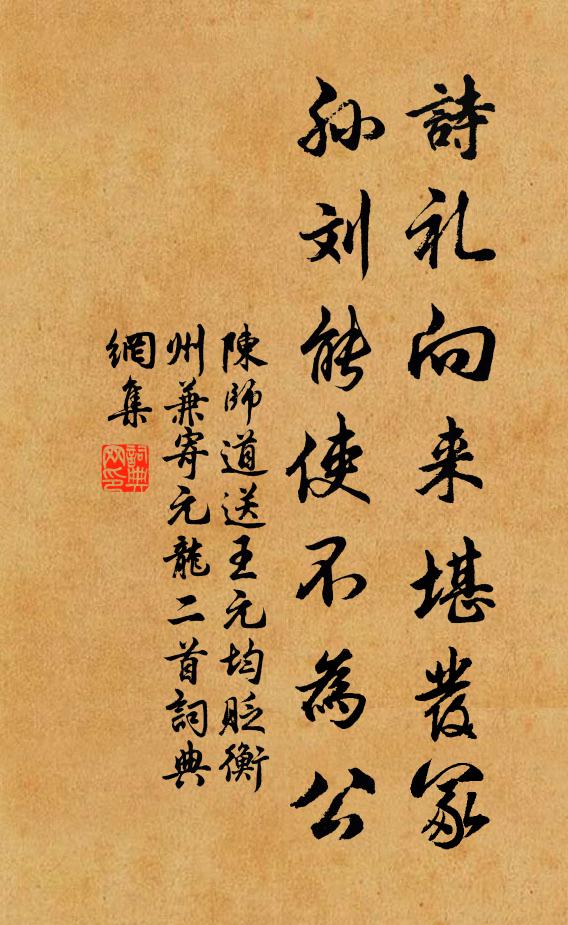 詩礼向来堪發冢
孙刘能使不為公
陳師道送王元均貶衡
州兼寄元龍二首詞典
網集
詞典網印